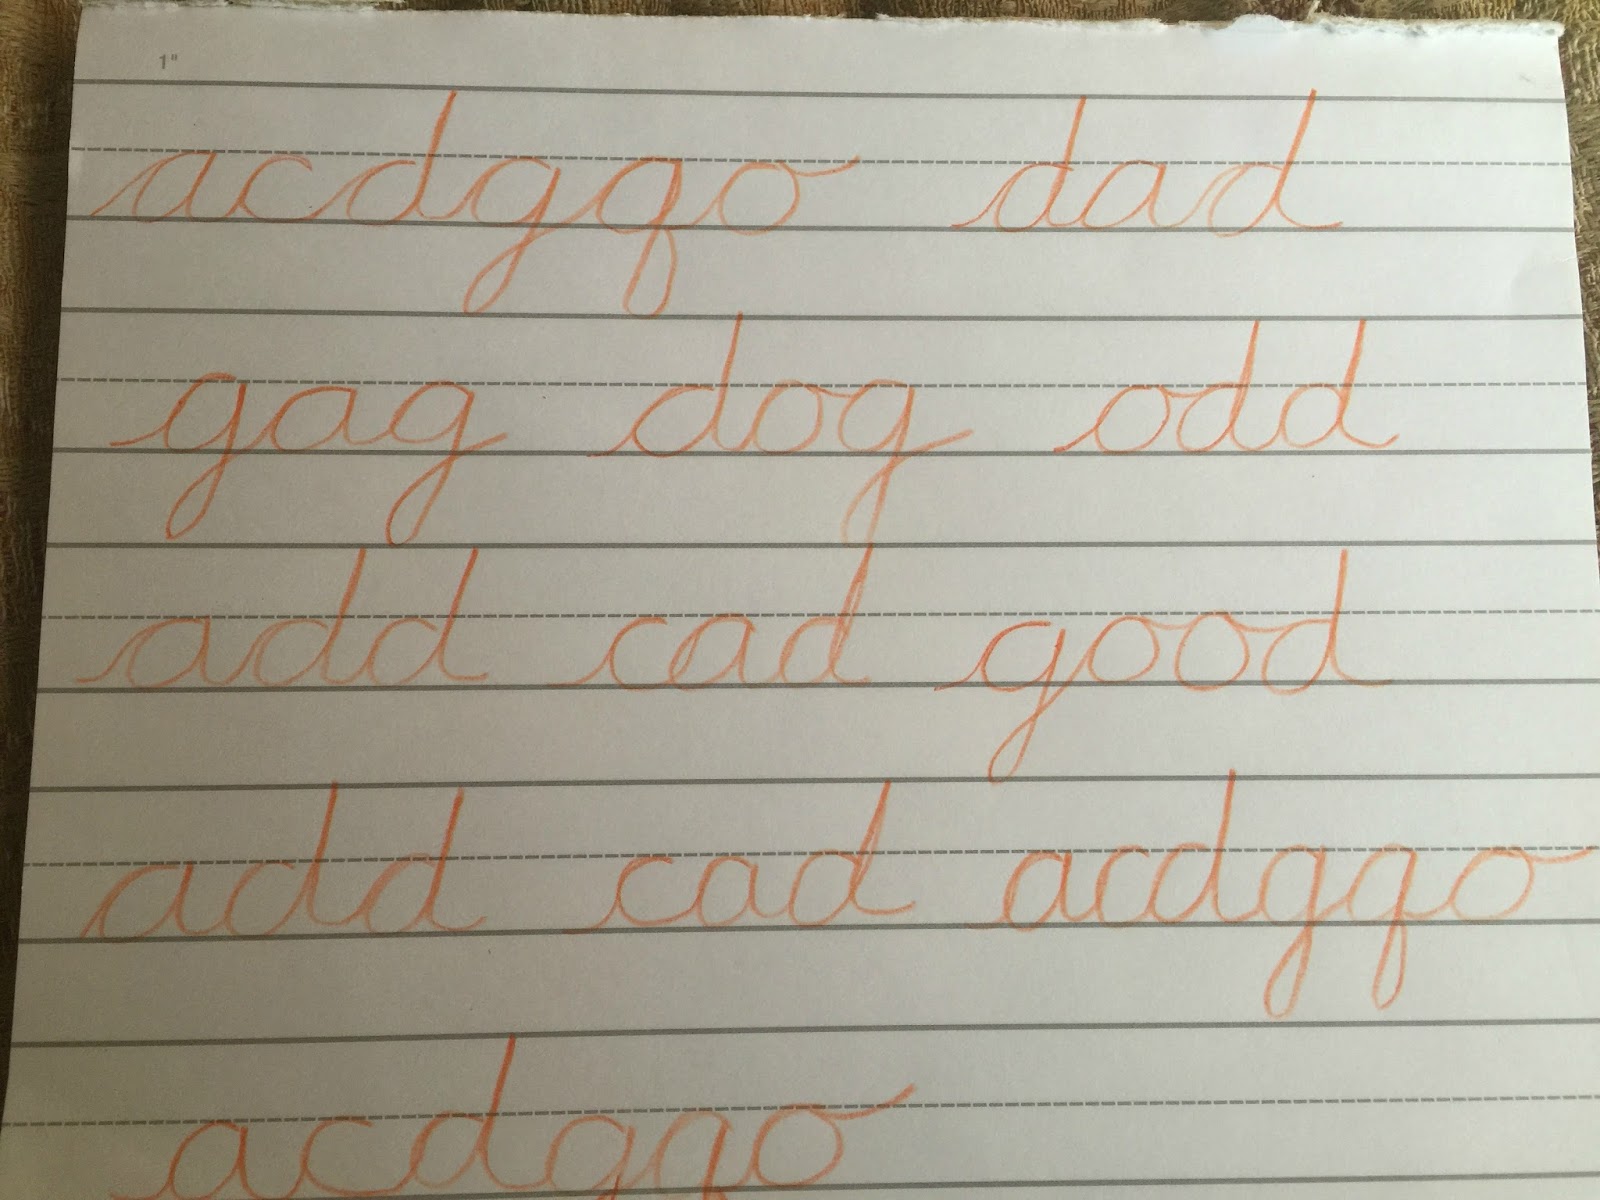 1"
acdgqo dad
gag dog odd
add cad good
add cad acdgqo
acdgqo